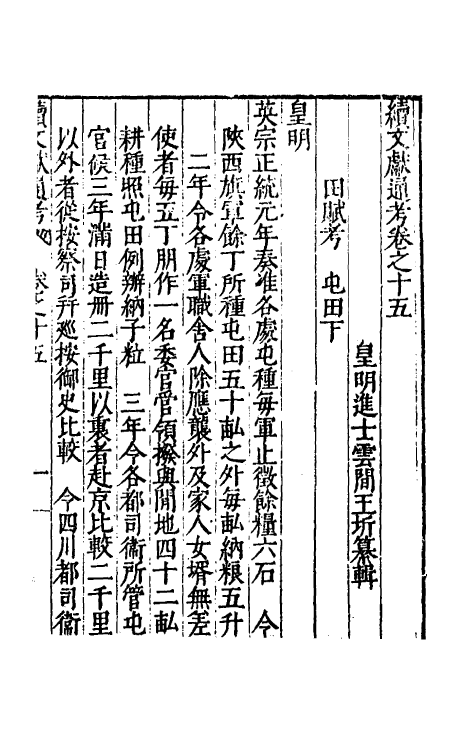 續文獻通考卷之十五
皇明進士雲間王圻纂輯
田賦考　屯田下
皇明
英宗正統元年奏准各處屯種每軍止徵餘糧六石　令
陝西旗軍餘丁所種屯田五十畝之外每畝納粮五升
二年令各處軍職舍人除應襲外及家人女壻無差
使者每五丁朋作一名委官管領撥與閒地四十二畝
耕種照屯田例辦納子粒　三年令各都司衞所管屯
官候三年滿日造册二千里以裏者赴京比較二千里
以外者從按察司幷廵按御史比較　令四川都司衞
續文獻通考　卷之十五　一